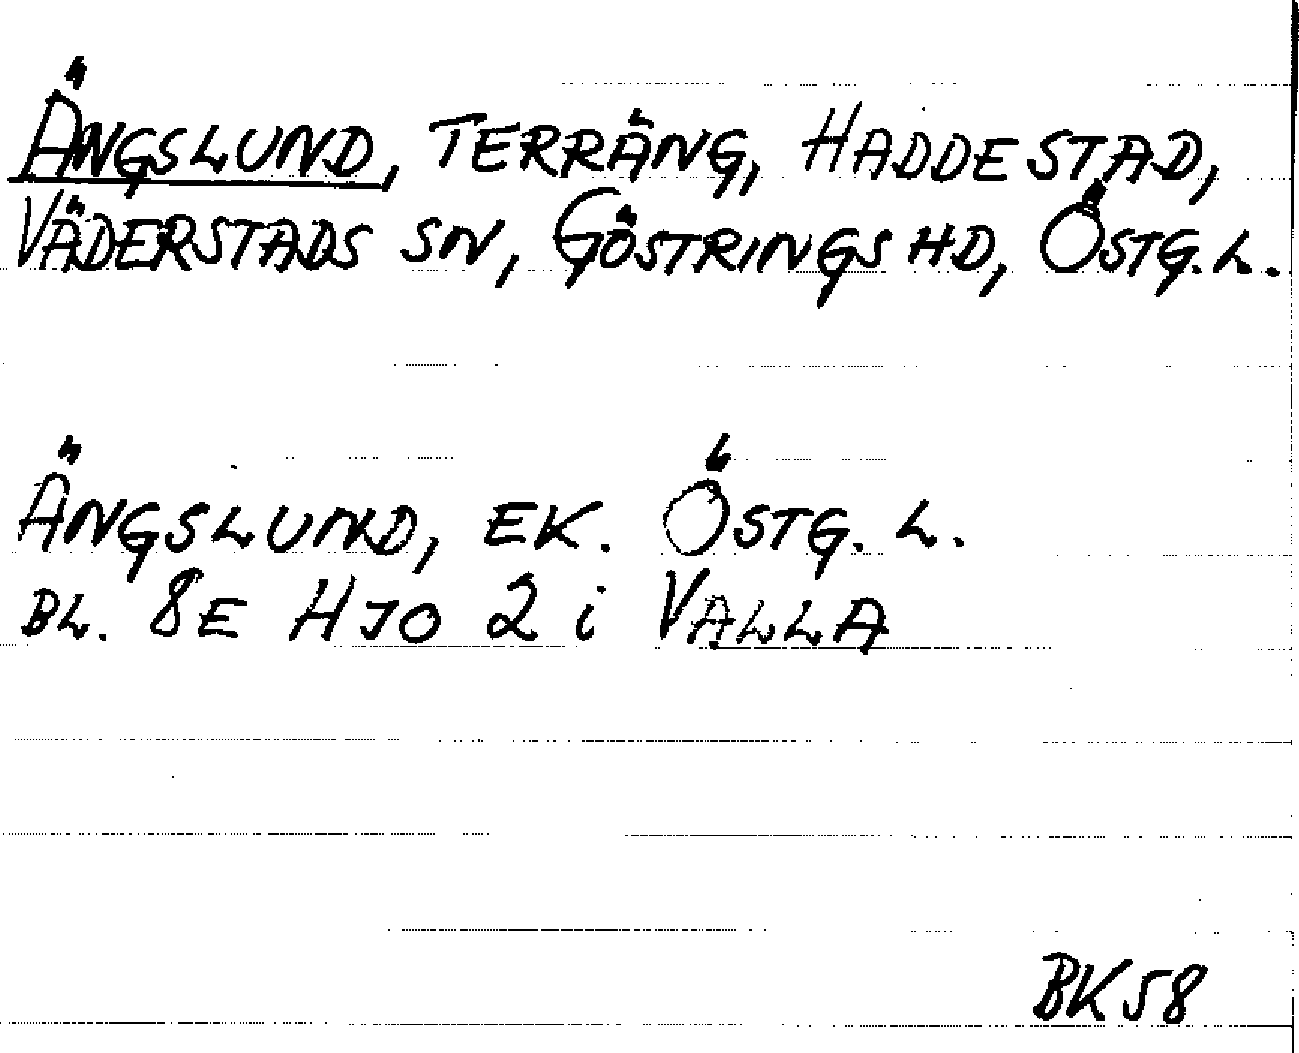 ÄNGSLUND, TERRÄNG, HADDESTAD,
VÄDERSTADS SN, GÖSTRINGS HD, ÖSTG. L.
ÄNGSLUND, EK. ÖSTG. L.
BL. 8E HJO 2 i VALLA
BK 58